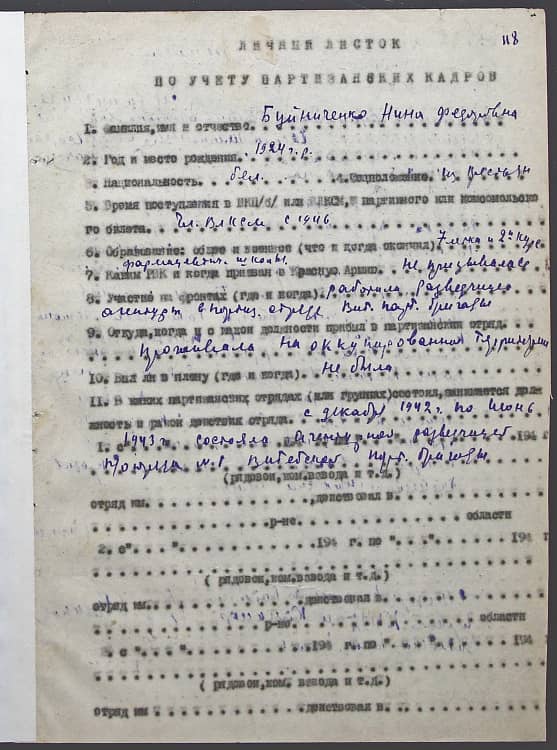 118
ЛИЧНЫЙ ЛИСТОК
ПО УЧЕТУ ПАРТИЗАНСКИХ КАДРОВ
1. Фамилия,имя и отчество. Буйниченко Нина Федоровна
2. Год и место рождения. 1924 г.р.
3. Национальность. бел. 4.Соцположение. из крестьян
5. Время поступления в ВКП/б/ или ВЛКСМ, партийного или комсомольско
го билета. Чл. ВЛКСМ с 1946
6. Образование: общее и военное (что и когда окончил) 7 летка и 2й курс
фармацевтич. школы.
7. Каким РВК и когда призван в Красную Армию. Не призывалась
8. Участие на фронтах (где и когда). работала разведчицей
агентурн в партиз. отряде Вит. парт. бригады
9. Откуда,когда и с какой должности прибыл в партизанский отряд.
Проживала на оккупированной территории
10. Был ли в плену (где и когда). Не была
11. В каких партизанских отрядах (или группах)состоял,занимаемая долж
ность и район действия отряда. с декабря 1942 г. по июнь
1. 1943 г. состояла агентурной разведчицей 194 г
отряда №1 Витебской парт. бригады
(рядовой,ком.взвода и т.д.)
отряд им. ,действовал в
р-не. области
2. с" " 194 г. по " " 194 г
( рядовой,ком.взвода и т.д.)
отряд им. действовал в.
р-не. области
3. с " " 194 г. по " " 194
( рядовой,ком. взвода и т.д.)
отряд им действовал в.